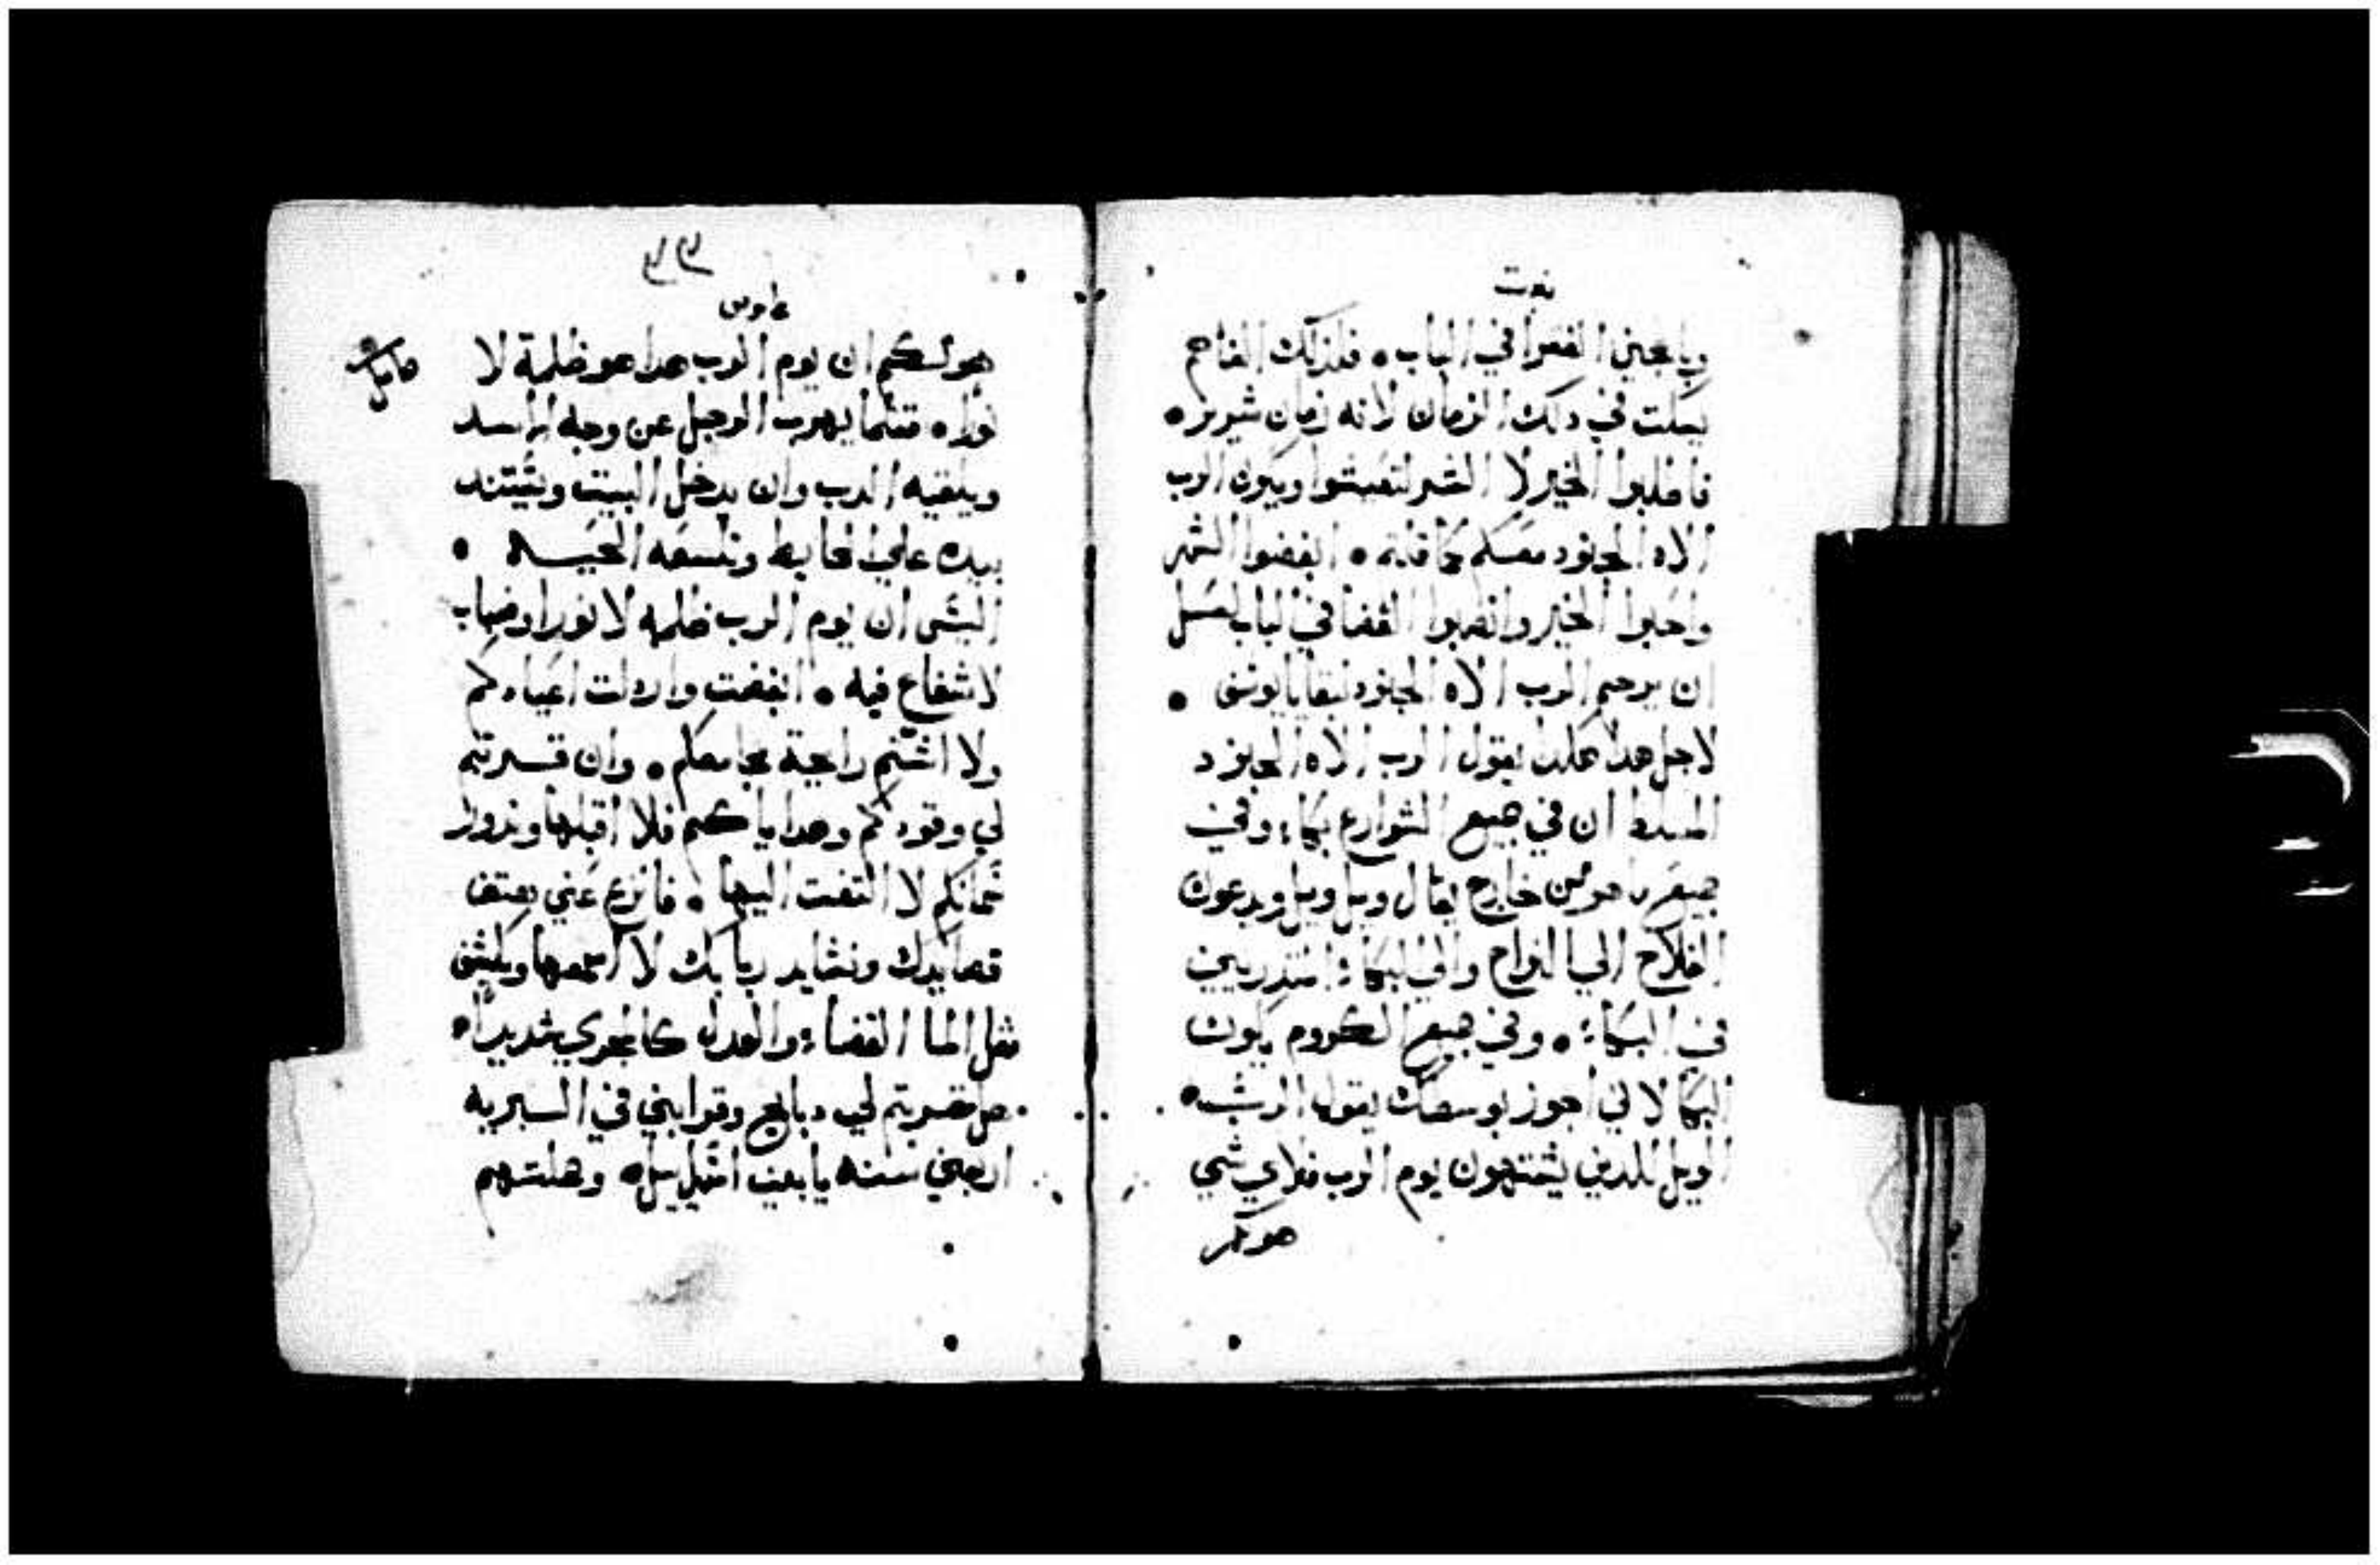 نبوت
وباعجين الفقرا في الباب • فلذلك الفاهم
يسكت في دلك الزمان لانه زمان شرير •
فاطلبوا الخير لا الشر لتعيشوا ويكون الرب
الاه الجنود معكم كما قلتم • ابغضوا الشر
واحبوا الخير وانصبوا القضا في الباب لعسل
ان يرحم الرب الاه الجنود لبقايا يوسف •
لاجل هدا هكدا يقول الرب الاه الجنود
المسلط ان في جميع الشوارع بكاء وفي
جميع ما هو من خارج يقال ويل ويل ويدعون
الفلاح الي النواح والي البكاء
في البكاء • وفي جميع الكروم يكون
البكا لاني اجوز بوسطك يقول الرب •
الويل للدين يشتهون يوم الرب فلاي شي
هو لكم
عاموس
هو لكم ان يوم الرب هدا هو ظلمة لا
نورا • مثلما يهرب الرجل عن وجه الاسد
ويلقيه الدب وان يدخل البيت ويستند
بيده علي الحايط وتلسعه الحيه •
اليس ان يوم الرب ظلمه لا نورا وضباب
لا شعاع فيه • ابغضت واردلت اعيادكم
ولا اشتم رايحة مجامعكم • وان قربتم
لي وقودكم وهداياكم فلا اقبلها وندور
سمانكم لا التفت اليها • فانزع عني
قصايدك ونشايد ربابك لا اسمعها
مثل الما القضاء والعدل كالمجري شديدا •
هل قربتم لي دبايح وقرابين في البريه
اربعين سنه يا بيت اسراييل •